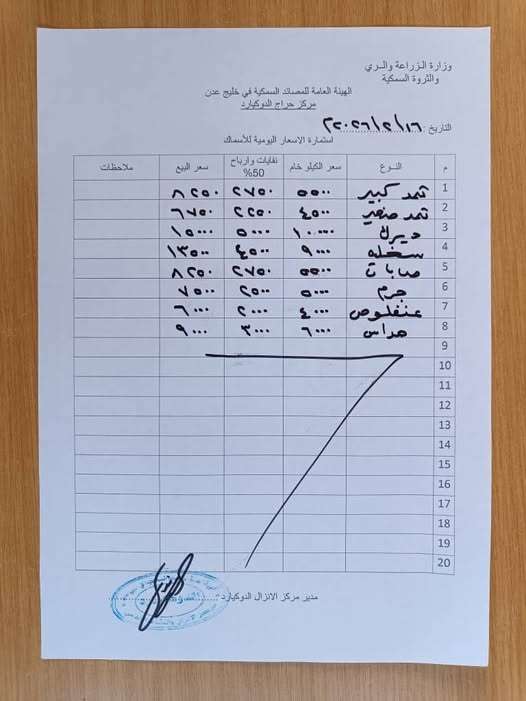 وزارة الزراعة والــري
والثروة السمكية
الهيئة العامة للمصائد السمكية في خليج عدن
مركز حراج الدوكيارد
التاريخ : ٢٠٢٦/٢/١٦م
استمارة الاسعار اليومية للأسماك
م النــوع سعر الكيلو خام نفايات وارباح 50% سعر البيع ملاحظات
1 ثمد كبير ٥٥٠٠ ٢٧٥٠ ٨٢٥٠
2 ثمد صغير ٤٥٠٠ ٢٢٥٠ ٦٧٥٠
3 ديرك ١٠٠٠٠ ٥٠٠٠ ١٥٠٠٠
4 سخله ٩٠٠٠ ٤٥٠٠ ١٣٥٠٠
5 صابات ٥٥٠٠ ٢٧٥٠ ٨٢٥٠
6 جرم ٥٠٠٠ ٢٥٠٠ ٧٥٠٠
7 عنفلوص ٤٠٠٠ ٢٠٠٠ ٦٠٠٠
8 هداس ٦٠٠٠ ٣٠٠٠ ٩٠٠٠
9
10
11
12
13
14
15
16
17
18
19
20
مدير مركز الانزال الدوكيارد